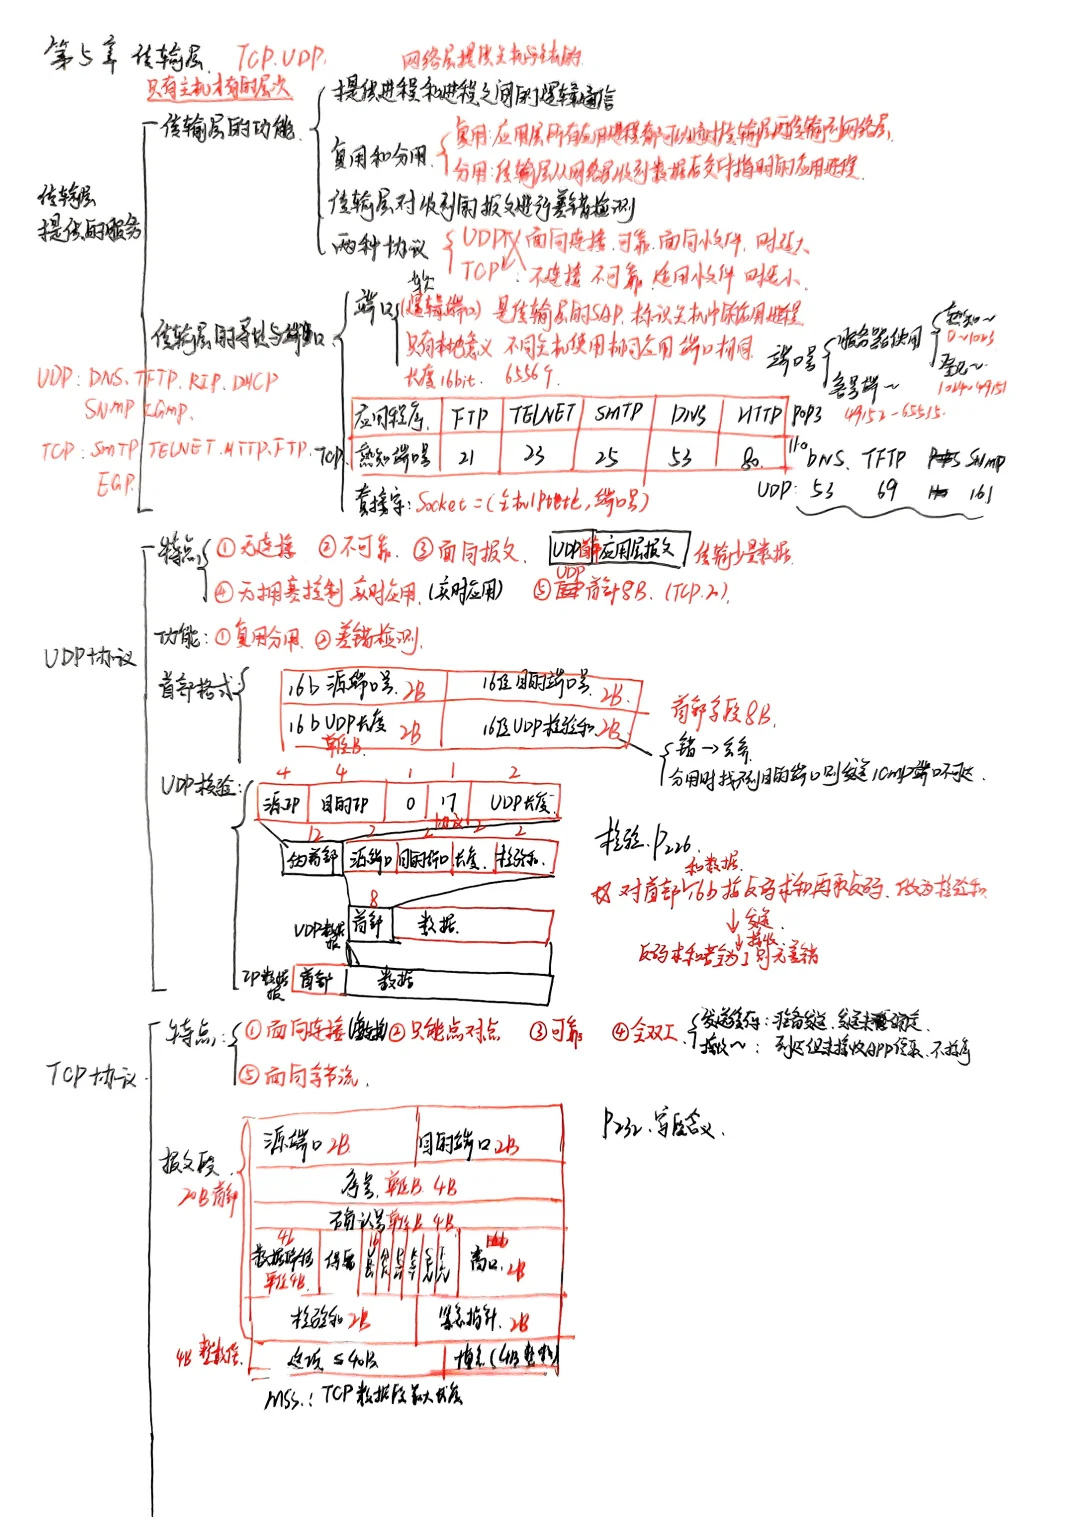 第5章 传输层. TCP.UDP. 网络层提供主机与主机的
只有主机才有的层次
传输层提供的服务
传输层的功能
提供进程和进程之间的逻辑通信
复用和分用
复用: 应用层所有应用进程都可以通过传输层再传输到网络层.
分用: 传输层从网络层收到数据后交付指明的应用进程.
传输层对收到的报文进行差错检测
两种协议
UDP 面向连接. 可靠. 面向大文件. 时延大
TCP 不连接 不可靠. 适用小文件 时延小.
传输层的寻址与端口
端口
软
(逻辑端口) 是传输层的SAP, 标识主机中的应用进程
只有本地意义 不同主机使用相同应用 端口相同.
长度16bit. 65569.
端口号
服务器使用
熟知~
0~1023
登记~
1024~49151
客户端~
49152-65515.
UDP: DNS.TFTP.RIP.DHCP
SNMP IGMP.
TCP: SMTP TELNET.HTTP.FTP.
EGP.
TCP.
应用程序. FTP TELNET SMTP DNS HTTP POP3
熟知端口号 21 23 25 53 80. 110
DNS. TFTP SNMP
UDP: 53 69 161
套接字: Socket=(主机IP地址, 端口号)
UDP协议
特点
① 无连接 ② 不可靠. ③ 面向报文. UDP首部 应用层报文 传输少量数据.
④ 无拥塞控制 实时应用. (实时应用) ⑤ UDP首部8B. (TCP.20).
功能: ① 复用分用. ② 差错检测.
首部格式
16b 源端口号. 2B 16位目的端口号. 2B
16b UDP长度 2B 16位UDP检验和. 2B
单位B.
首部字段8B.
错→丢弃
分用时找不到目的端口则发送ICMP端口不可达.
UDP校验:
4 4 1 1 2
源IP 目的IP 0 17 UDP长度.
协议
12 2 2 2 2
伪首部 源端口 目的端口 长度. 检验和.
8
UDP数据报 首部 数据.
IP数据报 首部 数据
检验. P226.
和数据.
对首部 16b 按反码求和再取反码. 改为检验和
↓发送
↓接收.
反码求和若全为1则无差错
TCP协议.
特点:
① 面向连接 ② 只能点对点 ③ 可靠 ④ 全双工.
发送缓存: 准备发送. 发送未确定.
接收~: 到达但未接收APP读取. 不按序
⑤ 面向字节流.
报文段.
20B首部
源端口 2B 目的端口. 2B
序号. 单位B. 4B
确认号 单位B. 4B.
4b
数据偏移 保留 窗口. 2B
单位4B.
检验和 2B 紧急指针. 2B
4B 整数倍. 选项 ≤40B 填充(4B整数)
MSS.: TCP数据段最大长度
P232. 字段含义.